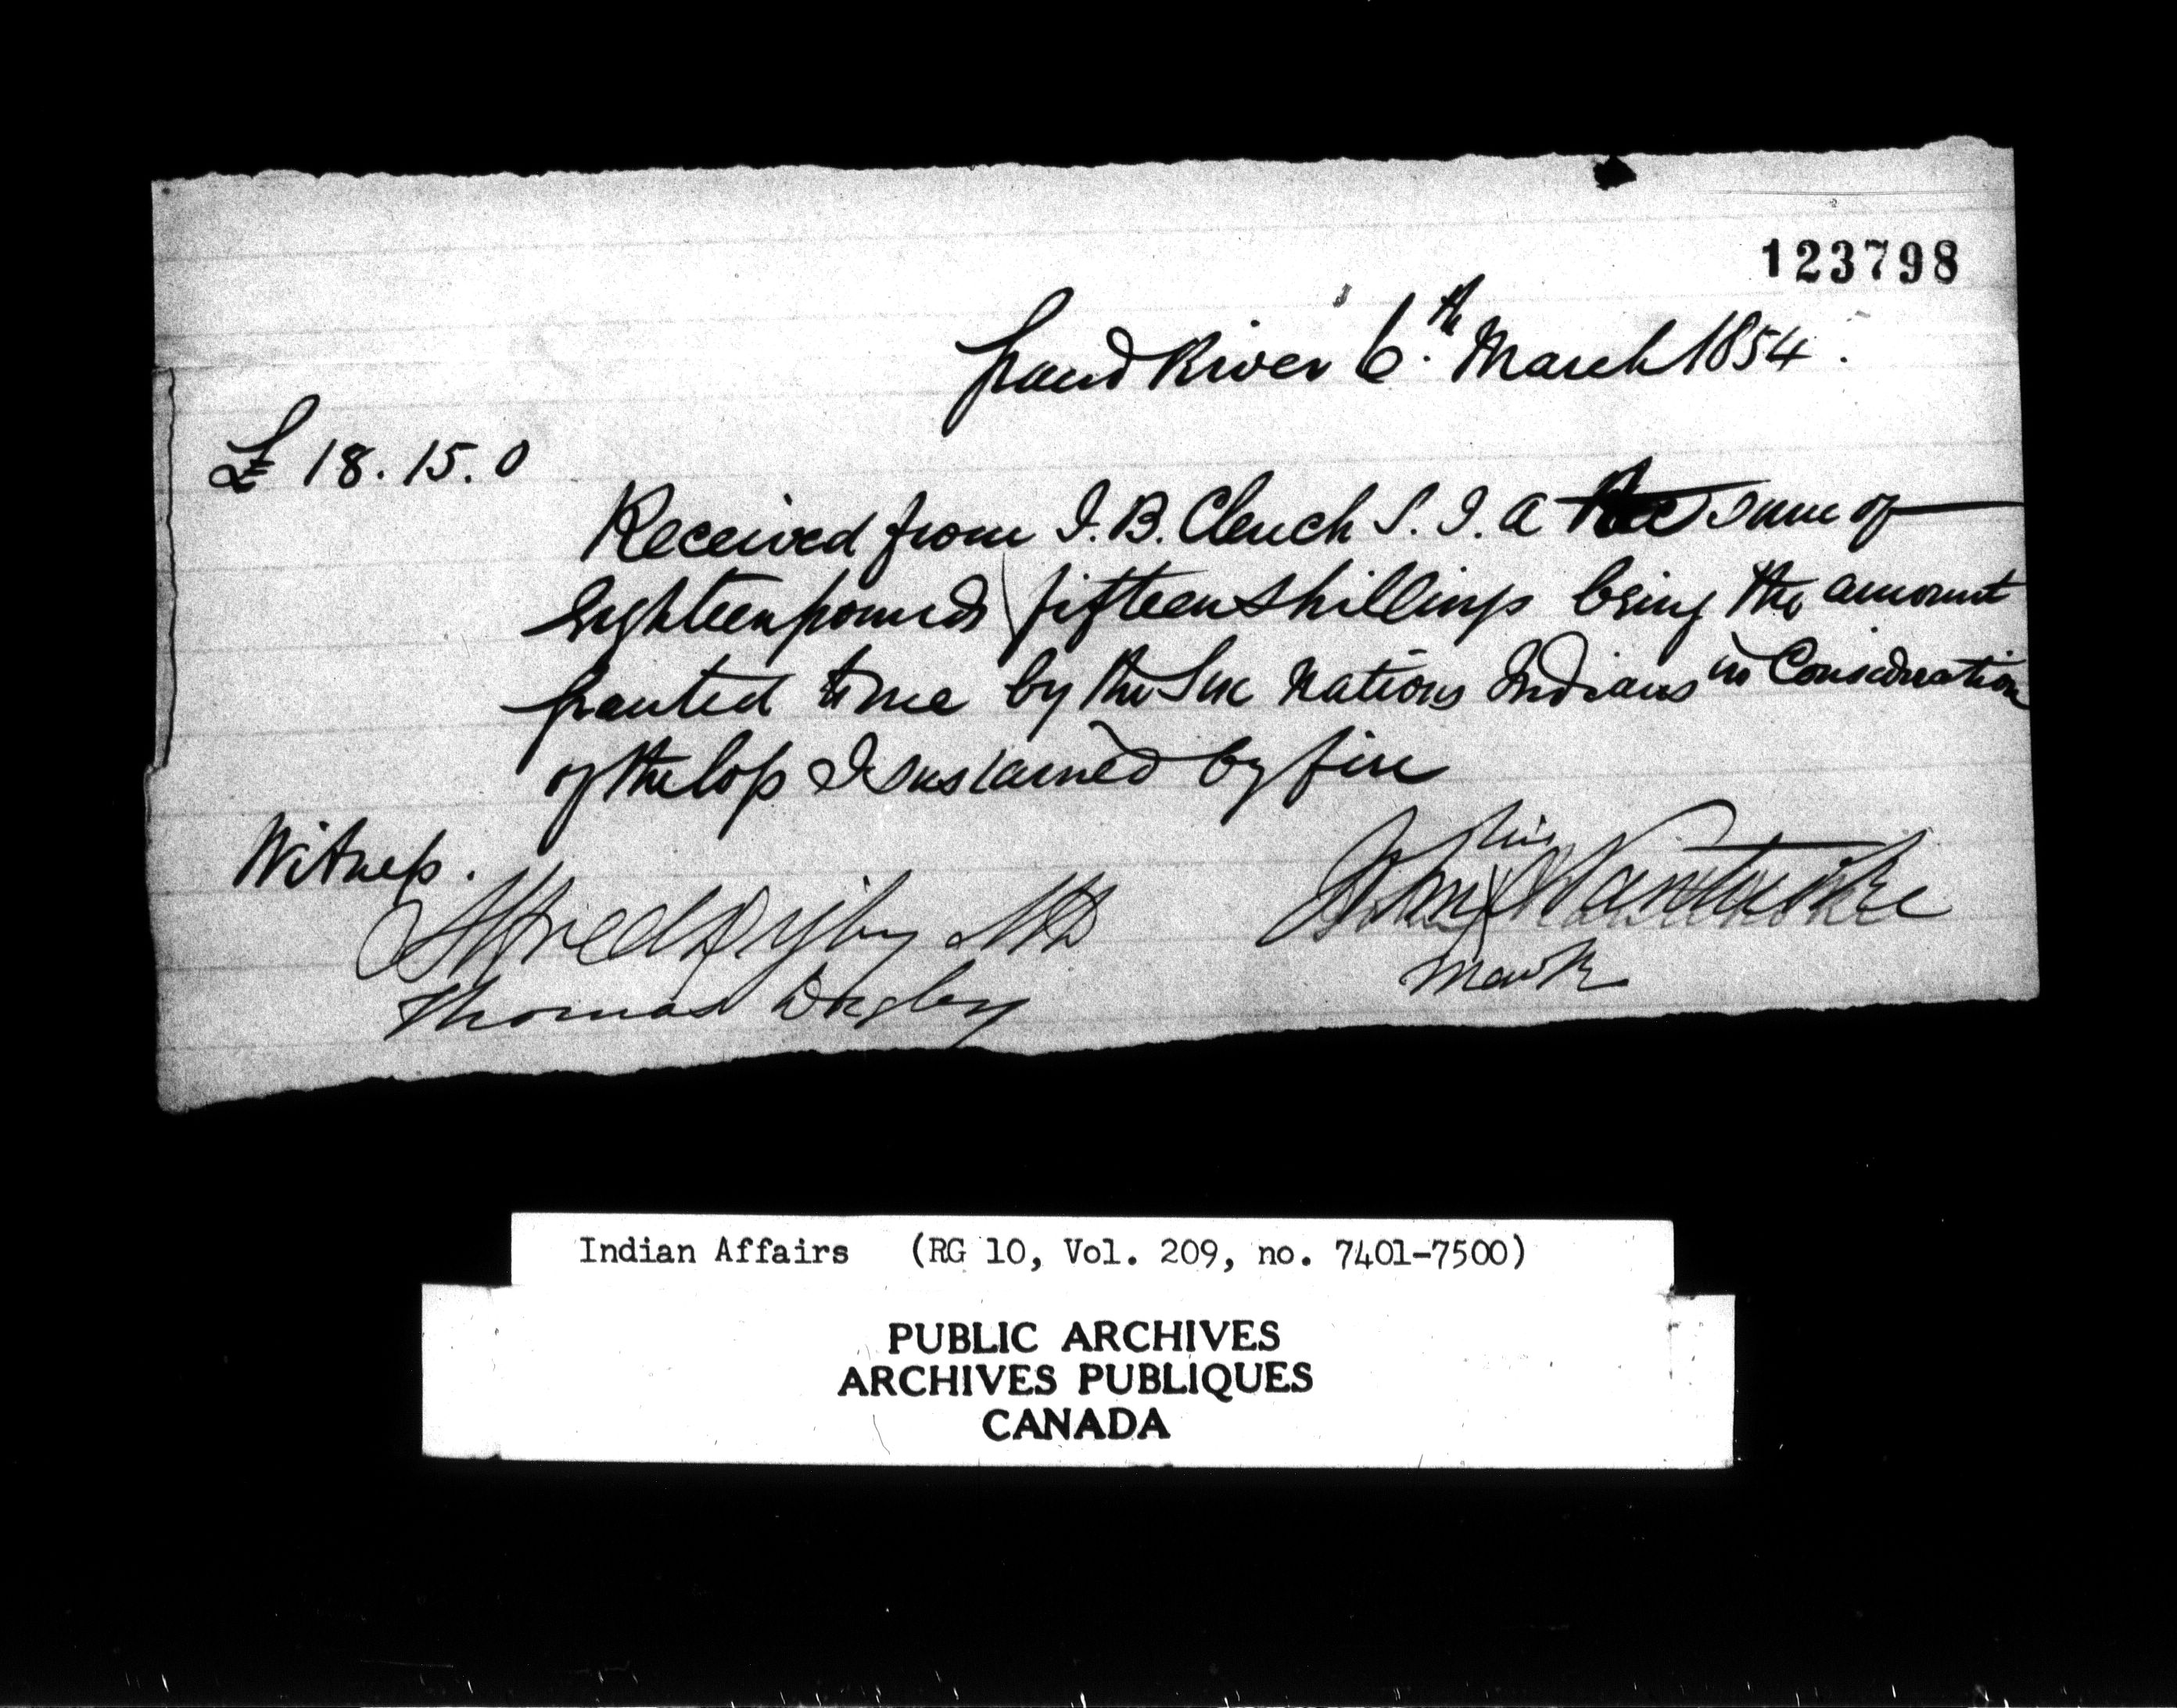 123798
Grand River 6th. March 1854.
£ 18. 15. 0
Received from J. B. Clench S. I. A the sum of
Eighteen pounds fifteen shillings being the amount
granted to me by the Six Nations Indians in Consideration
of the loss I sustained by fire
Witness.
his
John X
mark
Alfred Digby MD
Thomas Digby
Indian Affairs (RG 10, Vol. 209, no. 7401-7500)
PUBLIC ARCHIVES
ARCHIVES PUBLIQUES
CANADA